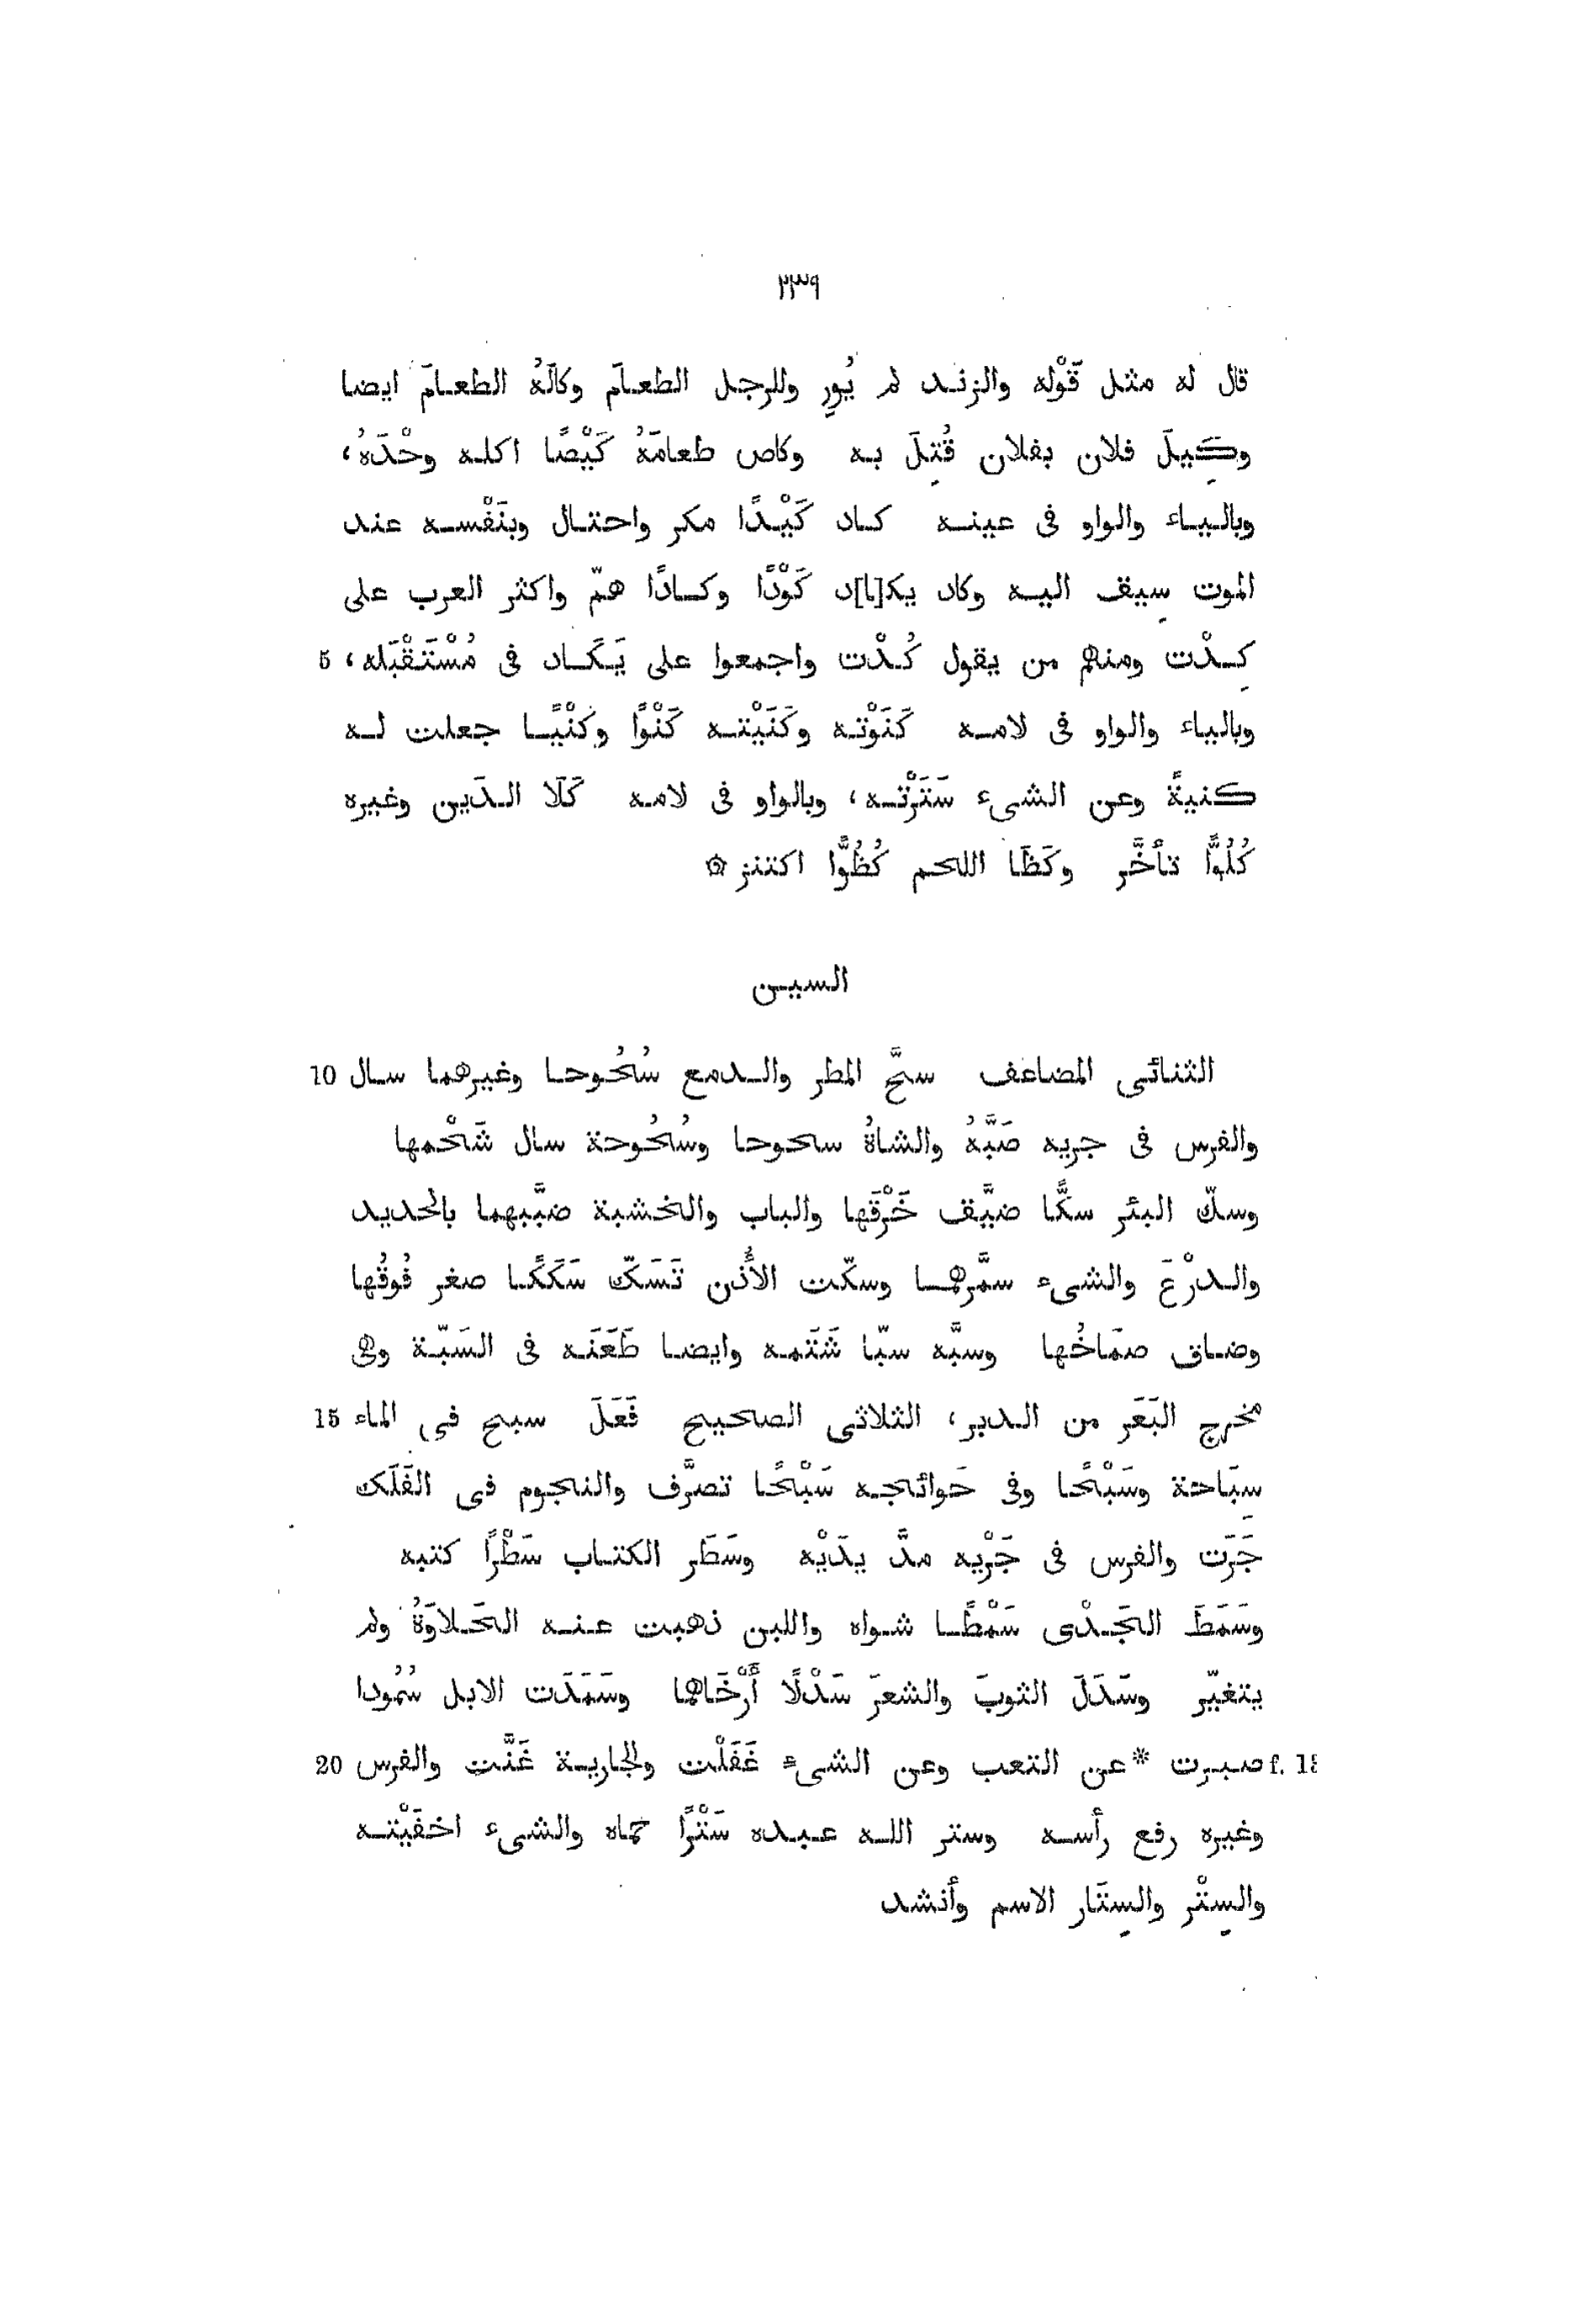 ٢٣٩
قال له مثل قَوْله والزنـد لم يُورِ وللرجل الطعـامَ وكالَهُ الطعـامَ ايضا
وكِيلَ فلان بفلان قُتِلَ بـه وكاص طعامَهُ كَيْصًا اكلـه وحْدَهُ،
وباليـاء والواو فى عينـه كـاد كَيْدًا مكر واحتـال وبنَفْسـه عند
الموت سِيق اليـه وكاد يكـ[ـا]د كَوْدًا وكـادًا همّ واكثر العرب على
كِـدْت ومنهم من يقول كُـدْت واجمعوا على يَـكَـاد فى مُسْتَـقْبَله، 5
وبالياء والواو فى لامـه كَنَوْتـه وكَنَيْتـه كَنْوًا وكَنْيًـا جعلت لـه
كنيةً وعن الشىء سَتَرْتـه، وبالواو فى لامـه كَلَا الـدَين وغيره
كُلُوًّا تأخَّر وكَظَا اللحم كُظُوًّا اكتنز ۞
السيـن
الثنائى المضاعف سحَّ المطر والـدمع سُحُـوحـا وغيرهما سـال 10
والفرس فى جريه صَبَّهُ والشاةُ سحوحا وسُحُوحة سال شَحْمها
وسكّ البئر سكًّا ضيَّق خَرْقَها والباب والخشبة ضبَّبهما بالحديد
والـدرْعَ والشىء سمَّرهمـا وسكّت الأُذُن تَسَكّ سَكَكًـا صغر فُوقُها
وضـاق صمَاخُها وسبَّه سبّا شَتَمـه وايضـا طَعَنَـه فى السَبّـة وهى
مخرج البَعَر من الـدبر، الثلاثى الصحيح فَعَلَ سبح فى الماء 15
سِبَاحة وسَبْحًـا وفى حَوائجـه سَبْحًا تصرَّف والنجوم فى الفَلَك
جَرَت والفرس فى جَرْيه مدَّ يدَيْه وسَطَر الكتـاب سَطْرًا كتبه
وسَمَطَ الجَـدْى سَمْطًـا شـواه واللبن ذهبت عـنـه الحَـلاوَةُ ولم
يتغيّر وسَدَلَ الثوبَ والشعرَ سَدْلًا أَرْخَاهما وسَمَدَت الابل سُمُودا
f. 18 صبـرت *عن التعب وعن الشىء غَفَلْت والجاريـة غَنَّت والفرس 20
وغيره رفع رأسـه وستر اللـه عـبـده سَتْرًا حماه والشىء اخفَيْتـه
والسِتْر والسِتَار الاسم وأنشد